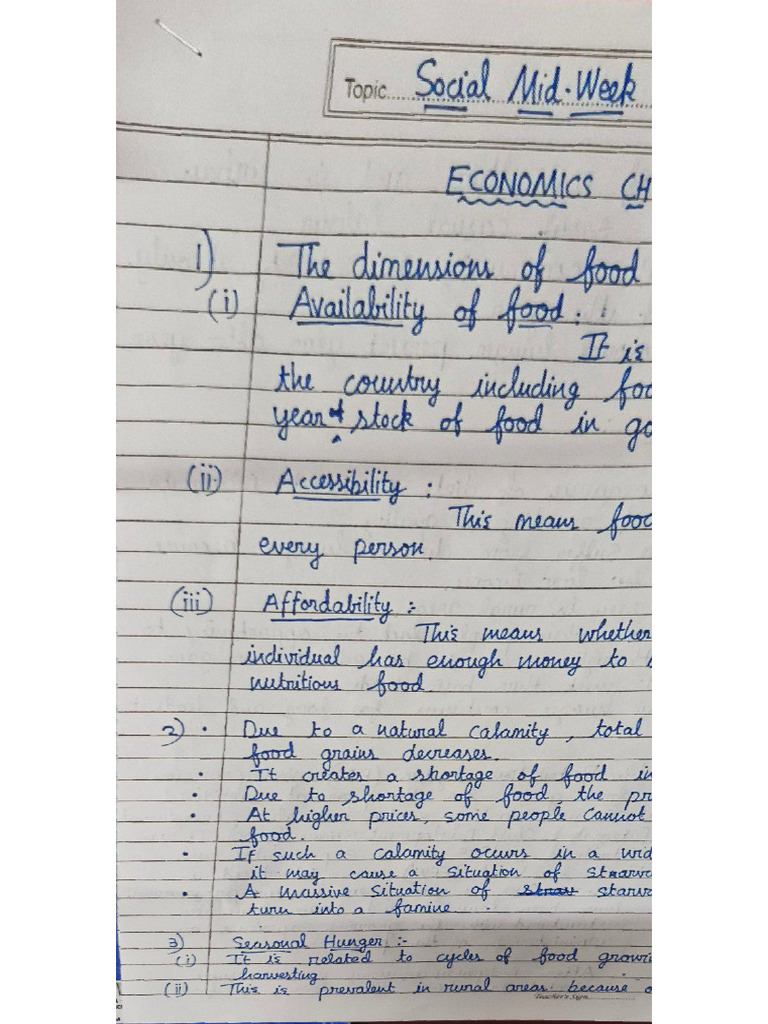 Topic.....Social Mid-Week
ECONOMICS CH
1) The dimensions of food
(i) Availability of food :
It is
the country including foo
year & stock of food in go
(ii) Accessibility :
This means food
every person.
(iii) Affordability :-
This means whether
individual has enough money to
nutritious food.
2) • Due to a natural calamity, total
food grains decreases.
• It creates a shortage of food in
• Due to shortage of food, the pr
• At higher prices, some people cannot
food.
• If such a calamity occurs in a wid
it may cause a situation of starva
• A massive situation of straw starva
turn into a famine.
3) Seasonal Hunger :-
(i) It is related to cycles of food growi
harvesting
(ii) This is prevalent in rural areas because o
Teacher's Sign